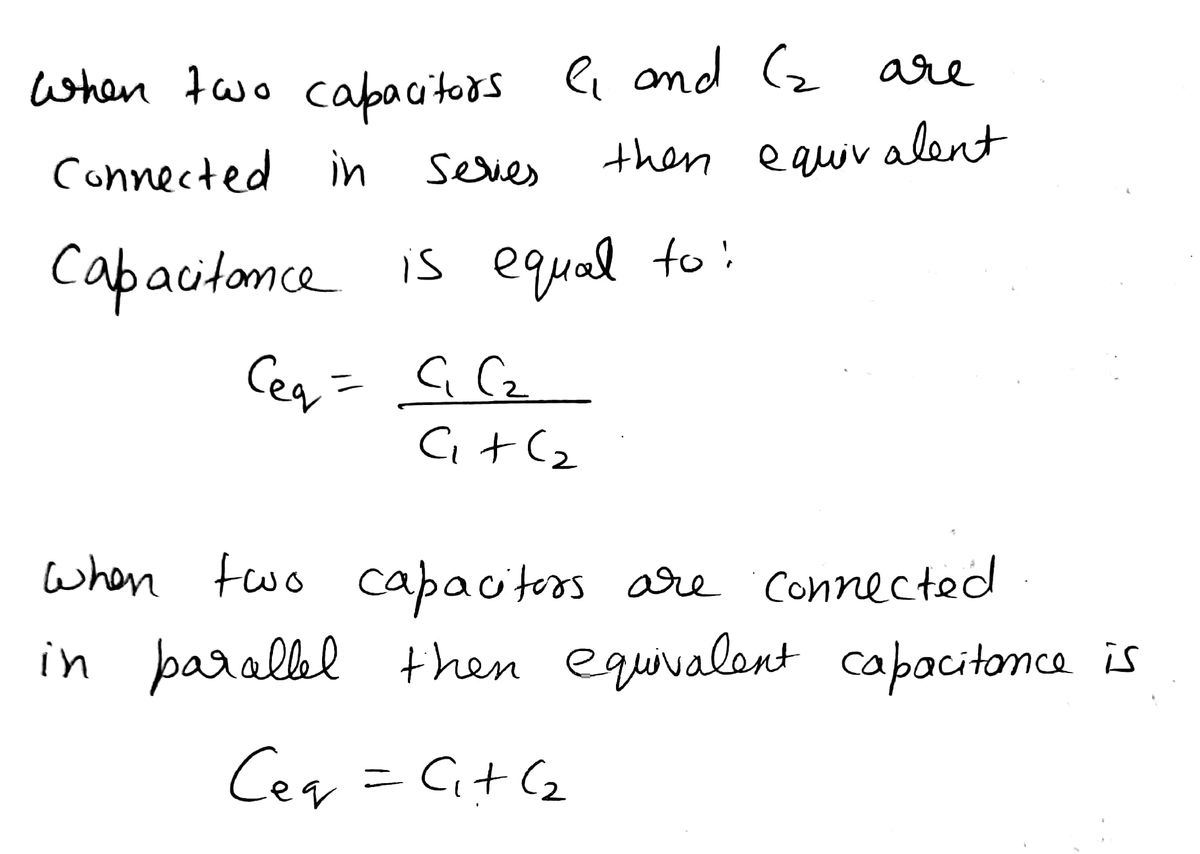 When two capacitors C₁ and C₂ are
Connected in series then equivalent
Capacitance is equal to:
Ceq = C₁ C₂
C₁ + C₂
When two capacitors are connected
in parallel then equivalent capacitance is
Ceq = C₁ + C₂